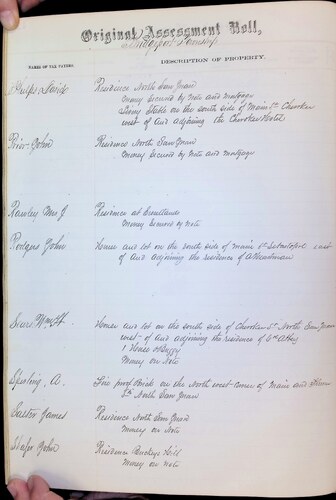 Original Assessment Roll,
Bridgeport Township
NAMES OF TAX PAYERS.
DESCRIPTION OF PROPERTY.
Phelps & Sands Residence North San Juan
Money Secured by note and mortgage
Livery Stable on the south side of Main St Cherokee
east of and adjoining the Cherokee Hotel
Prior John Residence North San Juan
Money Secured by note and mortgage
Rawley Mrs J. Residence at
Money Secured by Note
Rodgers John House and lot on the south side of Main St Sebastopol east
of and adjoining the residence of
Sears Wm H. House and lot on the south side of Cherokee St North San Juan
east of and adjoining the residence of
1 Horse & Buggy
Money on Note
Sperling A. Fire proof Brick on the North west corner of Main and
St North San Juan
Easton James Residence North San Juan
Money on Note
John Residence Buckeye Hill
Money on note